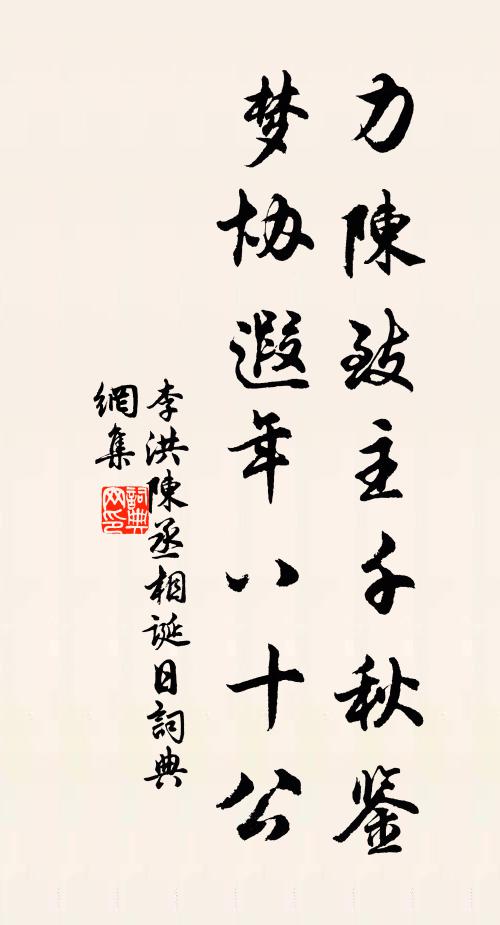 力陳致主千秋鉴
梦协遐年八十公
李洪陳丞相誕日詞典
網集
詞典
网印